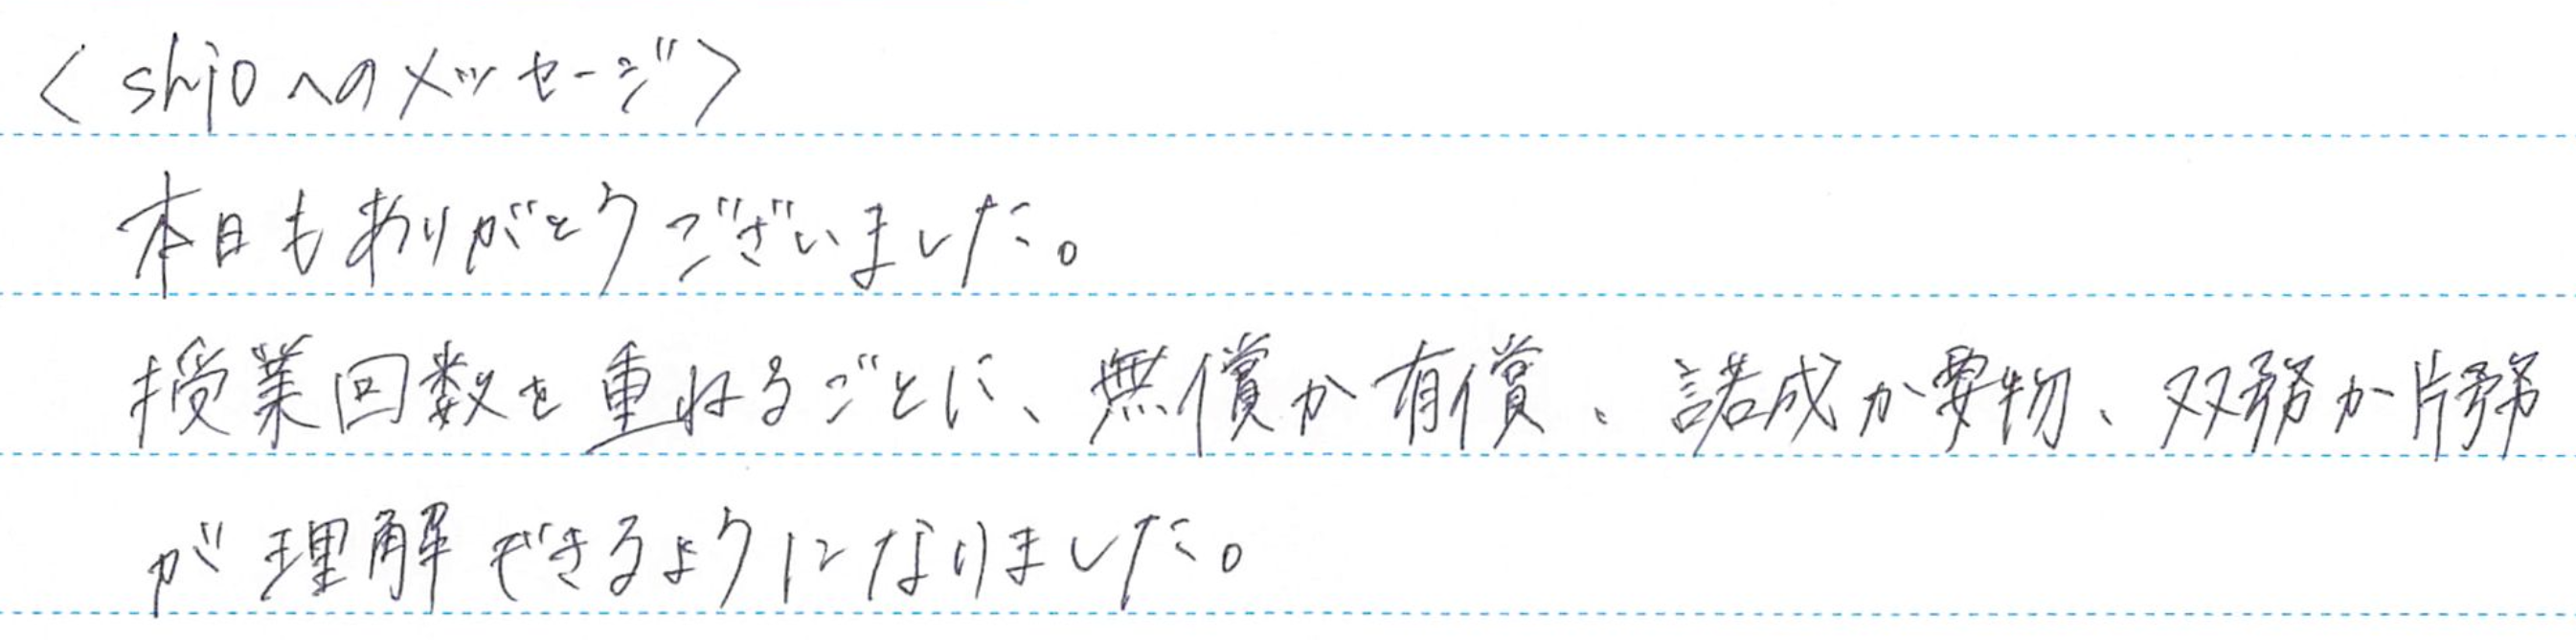 〈shioへのメッセージ〉
本日もありがとうございました。
授業回数を重ねるごとに、無償か有償、諾成か要物、双務か片務
が理解できるようになりました。